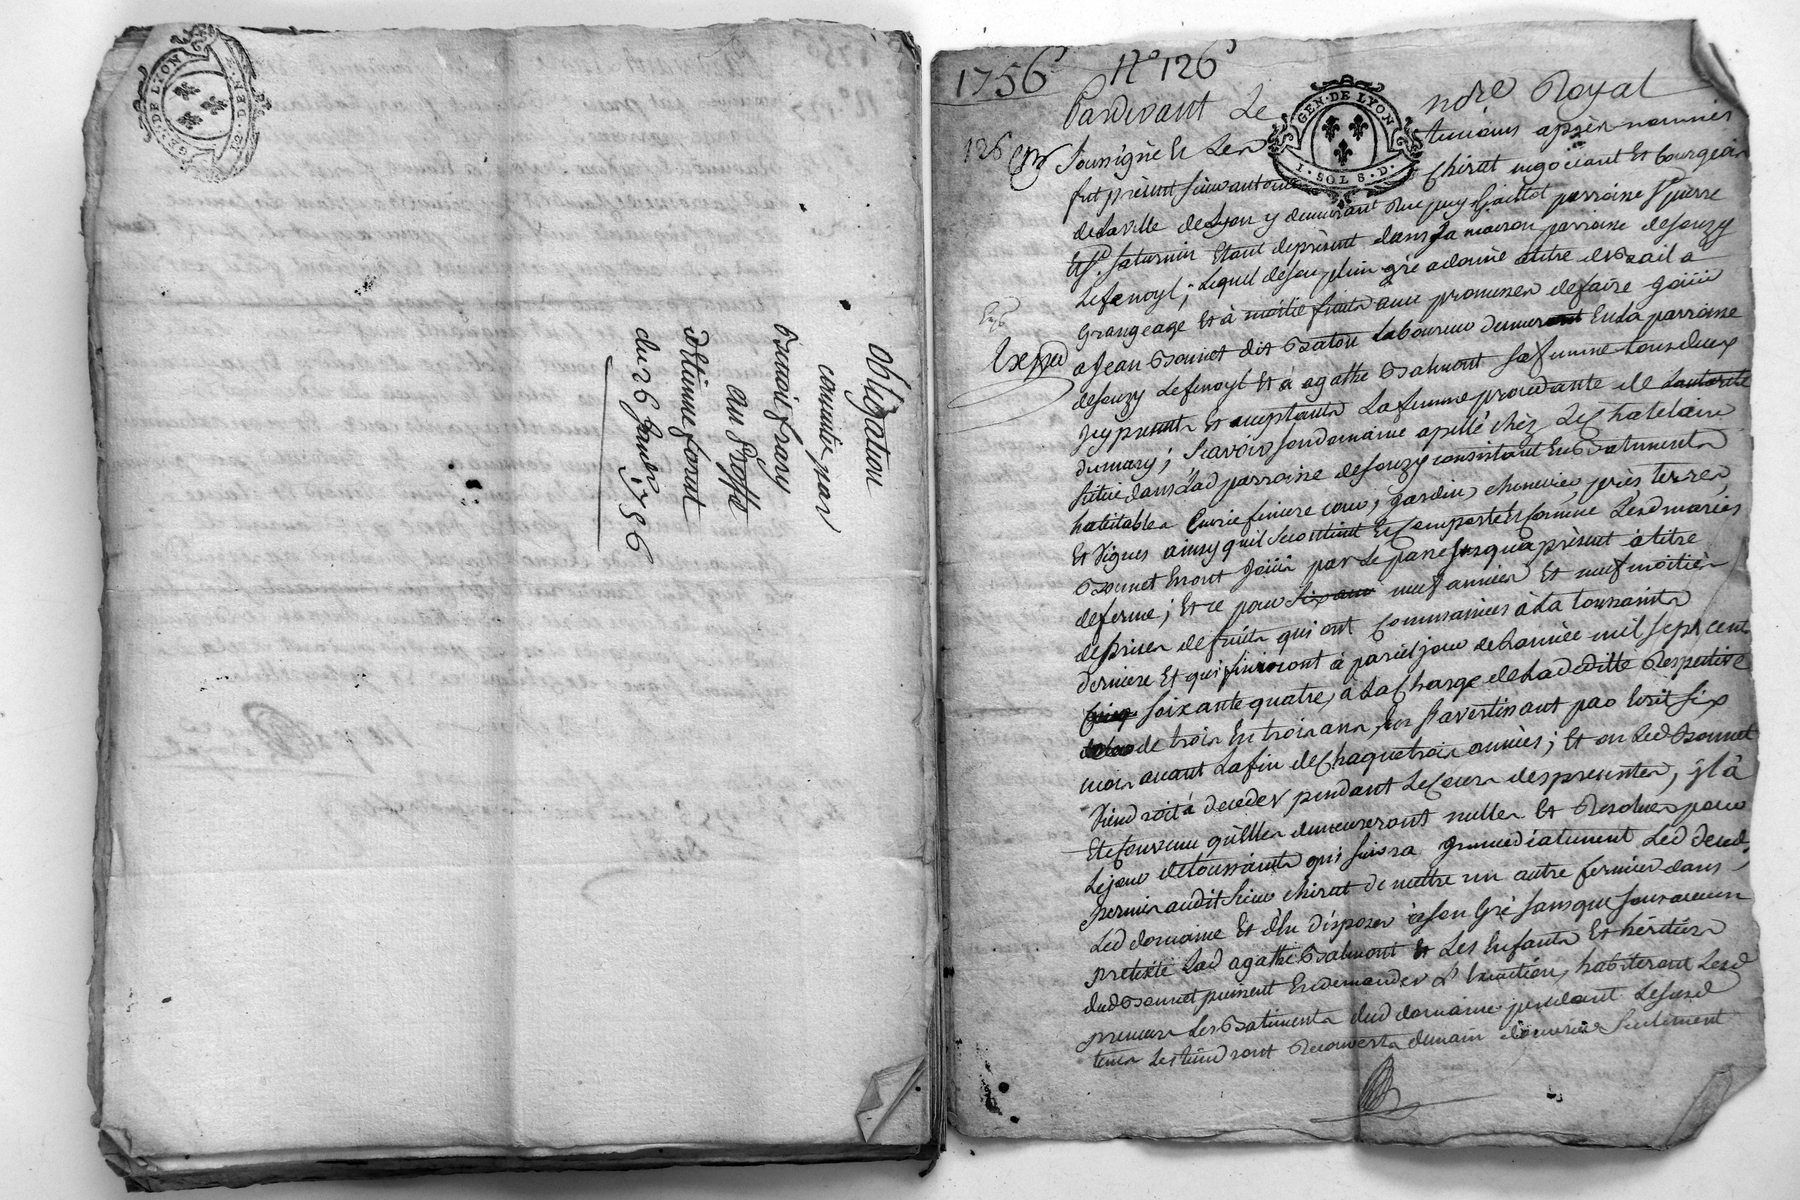 GEN. DE LYON
Obligation
commüe par
benoit frary
au proffit
d'etienne forat
du 26 1756
1756 N.o 126
GEN. DE LYON
I. SOL 8. D.
Pardevant Le nore Royal
126
soussigné Et Les temoins apres nommés
fut présent sieur antoine Chirat negociant Et bourgeois
de la ville de Lyon y demeurant Rue puy Gaillot parroisse St pierre
Et St saturnin Etant de présent dans sa maison parroisse de souzy
Lafenoyl; Lequel de son plein gré a donné a titre de Bail a
Grangeage Et à moitié fruits avec promesse de faire Jouir
Exped
a Jean Bonnet dit Baton Laboureur demeurant En La parroisse
de souzy Lefenoyl Et à agathe Balmont sa femme tous deux
icy present Et acceptants La femme procedante de Lautorité
du mary; scavoir son domaine apellé chéz Le Chatelain
situé dans Lad parroisse de souzy consistant En Batiments
habitables Ecurie feniere cour, jardin, cheneviere, près terres
Et Vignes ainsy quil se contient Et Comporte Et Comme Lesd mariés
Bonnet En ont Jouir par Le passé Jusqua présent à titre
de ferme; Et ce pour six ans neuf années Et neuf moitiés
de prises de fruits qui ont Commancées à La toussaints
derniere Et qui finiront à pareil jour de Lannée mil sept cent
soixante quatre, a La Charge de La deditte Respective
de trois En trois ans, En s'avertissant par Ecrit six
mois avant La fin de Chaque trois années; Et ou Led Bonnet
Viendroit à deceder pendant Le Cours des presentes, il à
Eté Convenu qu'elles demeureront nulles Et Resolues pour
Le jour de toussaints qui suivra immediatement Led deced,
permis audit sieur chirat de mettre un autre fermier dans
Led domaine Et d'en disposer à son Gré sans que sous aucun
pretexte Lad agathe Balmont Et Les Enfants Et héritiers
dud Bonnet puissent En demander L'Execution, habiteront Lesd
preneurs Les Batiments dud domaine pendant Lesusd
tems Les tiendront Recouverts demain d'ouvrier seulement